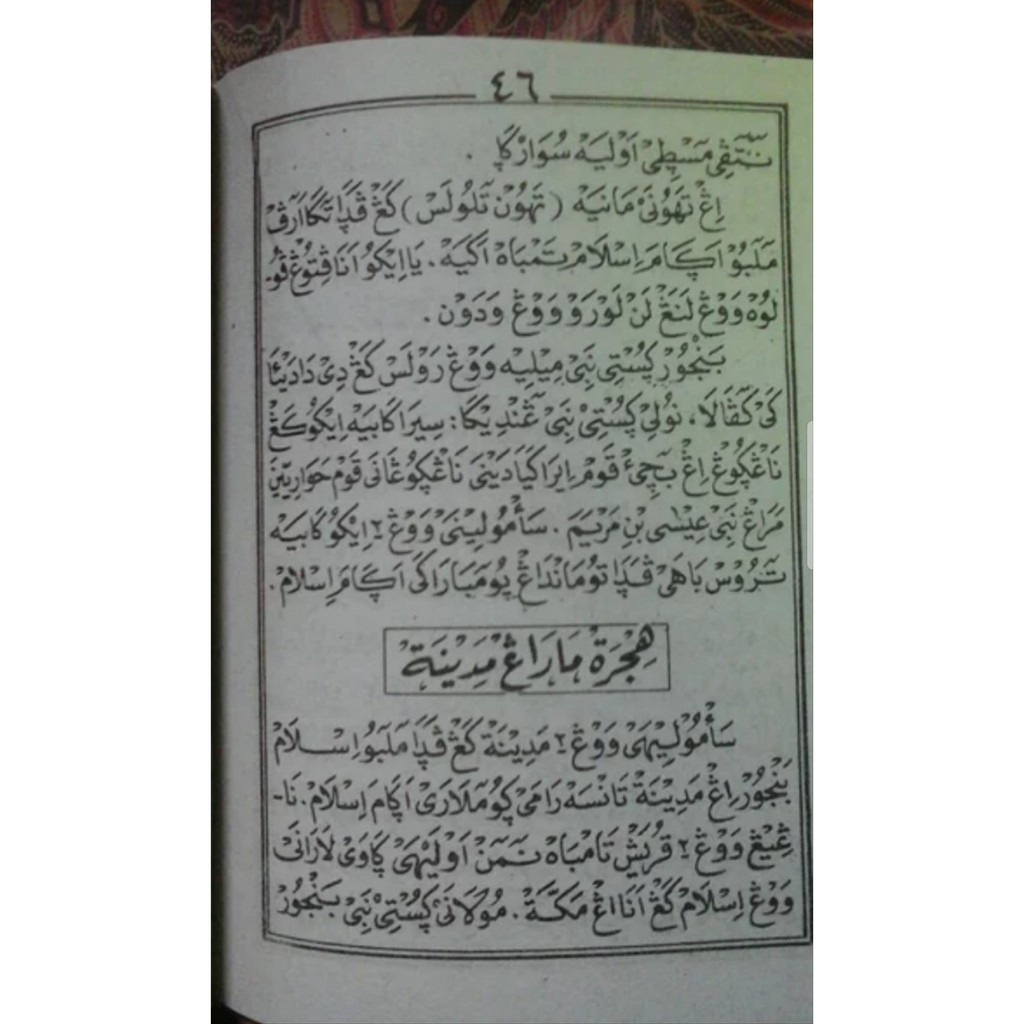 ٤٦
نتّڤي مسطي اَوليه سُوارڮا .
اِڠ تهونَي مانيه (تهون تلولس) كڠ ڤدا تكا ارف
ملبو اڮام اِسلام تمباه اكيه . يا ايكو انا ڤتوڠ ڤو-
لوه ووڠ لنڠ لن لورو ووڠ ودون .
بنجور ڮُستي نبي ميليه ووڠ رولس كڠ دي دادَيئا
كي كڤالا، نولي ڮستي نبي ڠنديكا: سيرا كابيه ايكو كڠ
ناڠڮوڠ اِڠ بچيء قوم اِيرا كيا دَيني ناڠڮوڠانَي قوم حواريّين
مراڠ نبي عيسى بن مريم . سأمولَيني ووڠ٢ ايكو كابيه
تروس باهَي ڤدا توماندڠ ڮومباراكَي اڮام اِسلام .
هجرة ماراڠ مدينة
سأموليهَي ووڠ٢ مدينة كڠ ڤدا ملبو اِسلام
بنجور اِڠ مدينة تانسه رامَي ڮوملارَي اڮام اِسلام . نا-
ڠيڠ ووڠ٢ قريش تامباه نمن اَوليهَي ڮاوَي لارانَي
ووڠ اِسلام كڠ انا اڠ مكّة . مولانَي ڮستي نبي بنجور